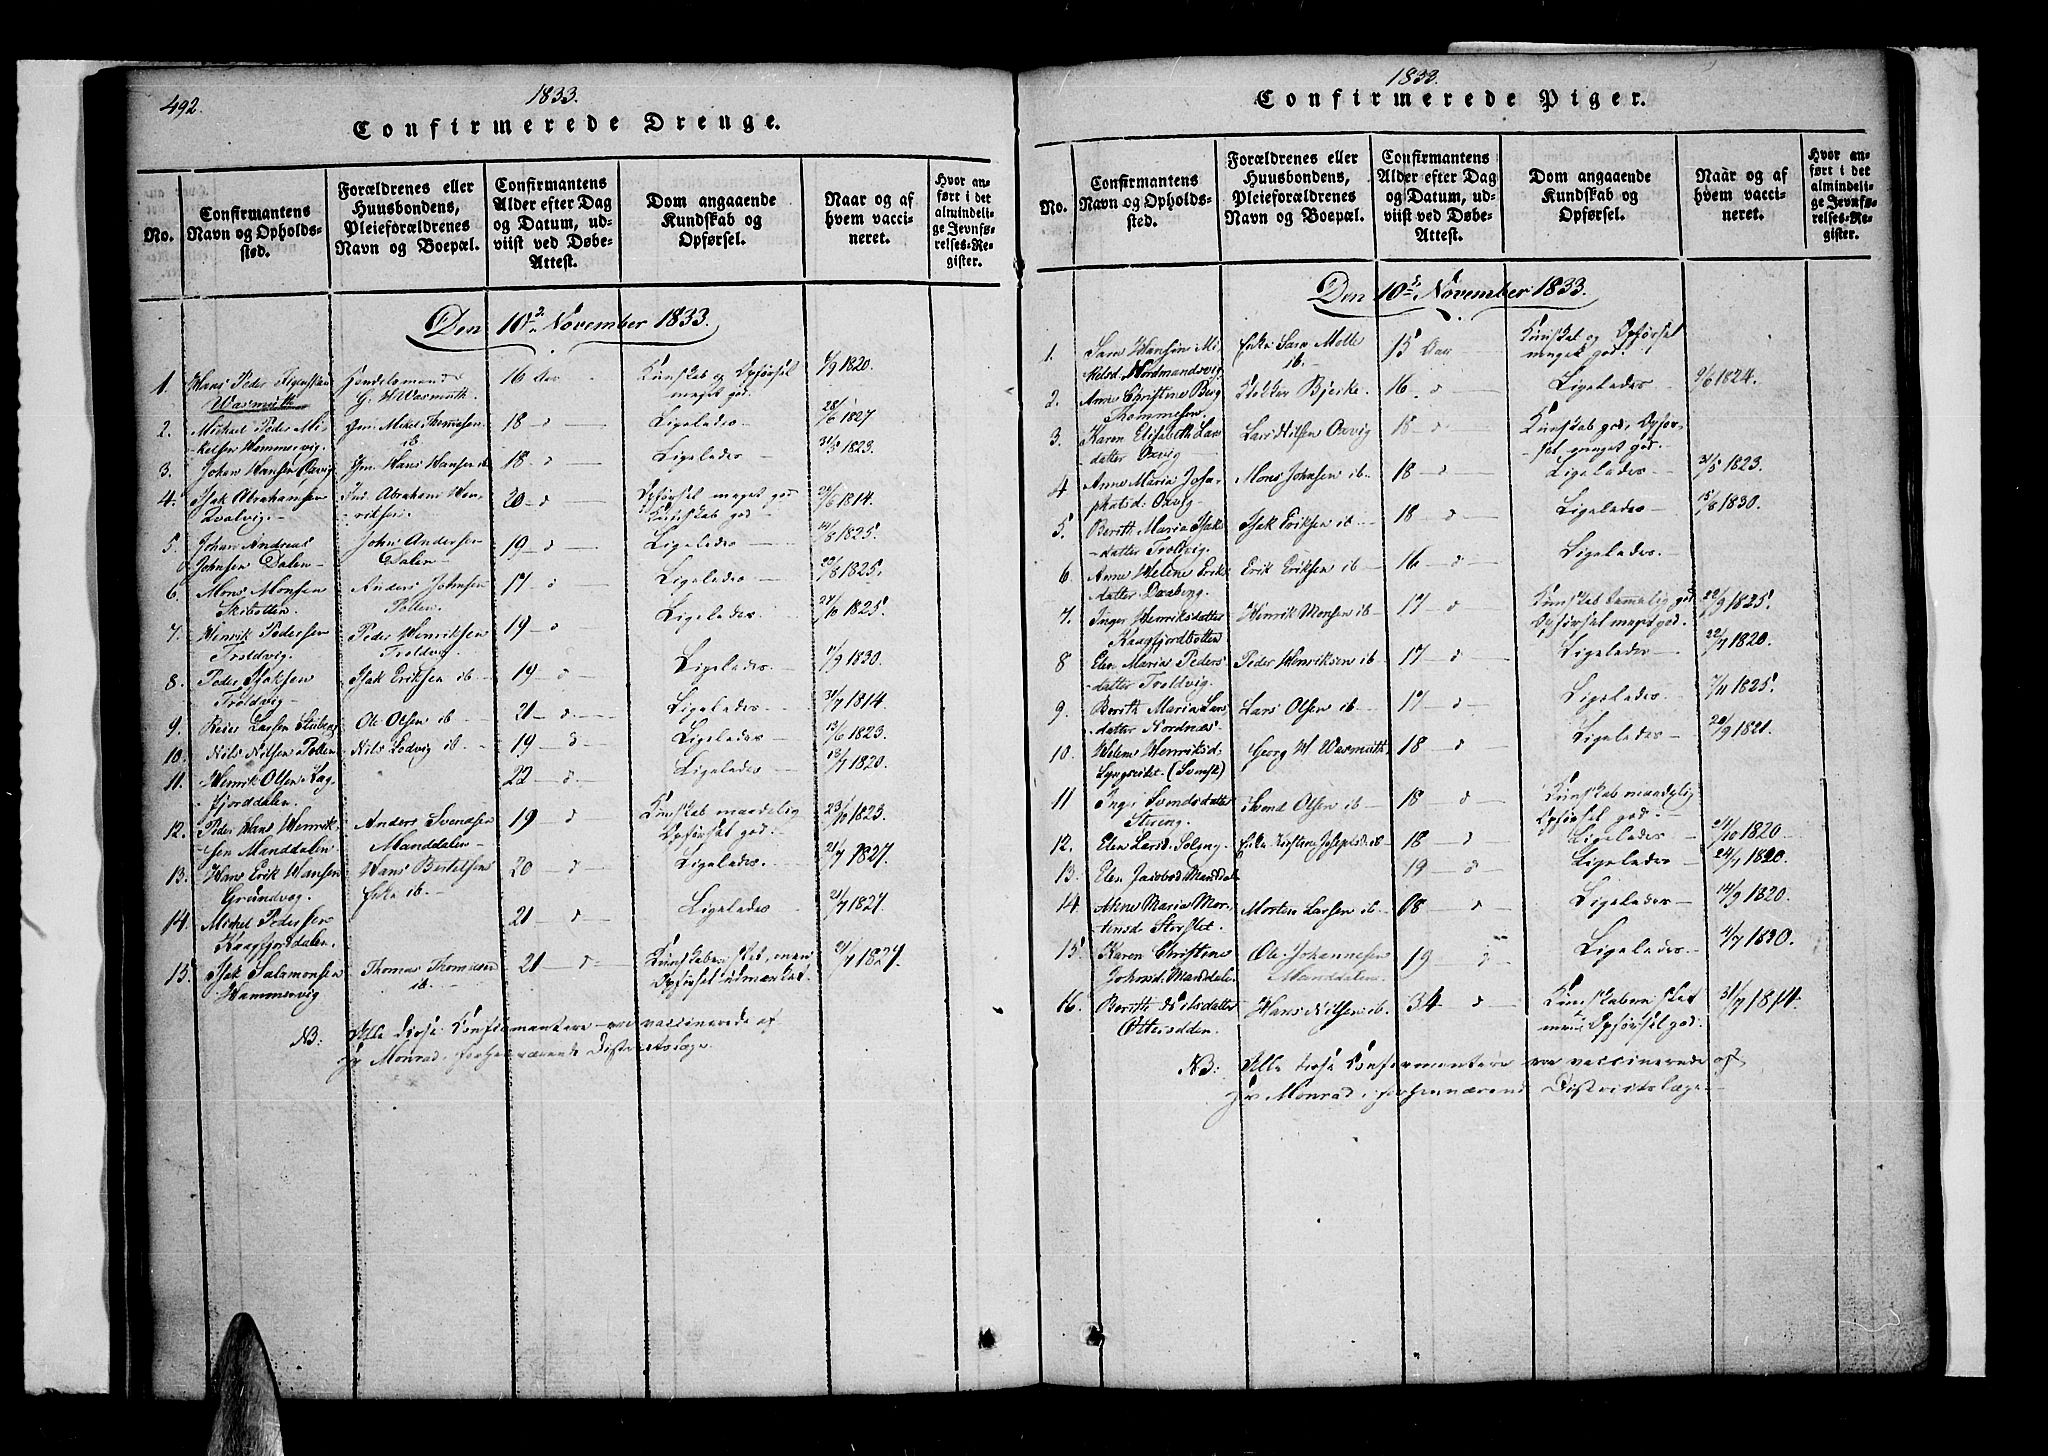 492.
1833.
Confirmerede Drenge.
No.
Confirmantens
Navn og Opholds-
sted.
Forældrenes eller
Huusbondens,
Pleieforældrenes
Navn og Boepæl.
Confirmantens
Alder efter Dag
og Datum, ud-
viist ved Døbe-
Attest.
Dom angaaende
Kundskab og
Opførsel.
Naar og af
hvem vacci-
neret.
Hvor an-
ført i det
almindeli-
ge Jevnfø-
relses-Re-
gister.
Den 10de November 1833.
1. Hans Peder
Wasmuth Handelsmand G. W. Wasmuth. 16 Aar Kunskab og Opførsel meget god. 1820.
2. Michael Peder Mi-
kelsen Hammervig. Mikel Thomesen ib. 18 d Ligeledes 1827
3. Johan Hansen Oxvig Hans Hansen ib 18 d Ligeledes 31/5 1823.
4. Isak Abrahamsen
Qvalvig. Abraham Hen-
riksen. 20 d Opførsel meget god Kunskab god 1814.
5. Johan Andreas
Johnsen Dalen John Andersen
Dalen 19 d Ligeledes 1825.
6. Mons Monsen
Skibotten. Anders Johnsen
Pollen 17 d Ligeledes 1825.
7. Henrik Pedersen
Troldvig. Peder Henriksen
Troldv. 19 d Ligeledes 1825.
8. Peder Isaksen
Troldvig Isak Eriksen ib 19 d Ligeledes 1830.
9. Reier Larsen Ole Olsen ib 21 d Ligeledes 31/7 1814.
10. Nils Nilsen Pollen Nils Lodvig ib. 19 d Ligeledes 1823.
11. Henrik Olsen
fjorddalen. 22 d Ligeledes 13/7 1820.
12. Peder Hans Henrik-
sen Manddalen Anders Svendsen
Manddalen 19 d Kunskab maadelig Opførsel god. 1823.
13. Hans Erik Hansen
Grundvog. Hans Bertelsen
Enke ib. 20 d Ligeledes. 21/7 1827.
14. Michel Pedersen
Kaagfjorddalen. 21 d Ligeledes 21/7 1827.
15 Isak Salamonsen
Hammervig Thomas Thomesen
ib. 21 d Kunskaben slet, men Opførsel udmærket. 1827.
NB: Alle disse Confirmantere ere vaccinerede af
Hr Monrad, forhenværende Districtslæge.
1833.
Confirmerede Piger.
No.
Confirmantens
Navn og Opholds-
sted.
Forældrenes eller
Huusbondens,
Pleieforældrenes
Navn og Boepæl.
Confirmantens
Alder efter Dag
og Datum, ud-
viist ved Døbe-
Attest.
Dom angaaende
Kundskab og
Opførsel.
Naar og af
hvem vacci-
neret.
Hvor an-
ført i det
almindeli-
ge Jevnfø-
relses-Re-
gister.
Den 10de November 1833.
1. Sara Hansin Mi-
kelsd. Nordmandsvig Enke Sara Molle
ib. 15 Aar Kunskab og Opførsel
meget god.
2. Anne Christine Berg
Thommesen. Klokker Bjerke. 16. d Ligeledes 1824.
3. Karen Elisabeth Lars
datter Oxvig Lars Nilsen Oxvig 18 d Kunskab god, Opfør-
sel meget god.
4 Anne Maria
Oxvig Mons Johnsen ib 18 d Ligeledes 31/5 1823.
5. Berith Maria Isaks
datter Troldvig. Isak Eriksen ib 18 d Ligeledes. 1830.
6 Anne Helene Eriks
datter Erik Eriksen ib 16 d Ligeledes.
7. Inger Henriksdatter
Kaagfjordbotten Henrik Monsen ib 17 d Kunskab temmelig god
Opførsel meget god. 1825.
8 Elen Maria Peders
datter Troldvig. Peder Henriksen ib 17 d Ligeledes 22/7 1820.
9. Berith Maria Lars
datter Nordnæs Lars Olsen ib 17 d Ligeledes. 7/11 1825.
10. Helene Henriksd.
Lyngseidet. Georg W. Wasmuth 18 d Ligeledes 1821.
11 Inger Svendsdatter
Stereng. Svend Olsen ib 18 d Kunskab maadelig
Opførsel god.
12. Elen Larsd. Soleng. Enke Kirstine Josephsd. ib 18 d Ligeledes 1820
13. Elen Jacobsd Manddal 19 d Ligeledes 24/7 1820.
14 Anne Maria Mor-
tensd. Storslet. Morten Larsen ib 18 d Ligeledes 14/9 1820.
15. Karen Christine
Johnsd. Manddalen Ole Johannesen
Manddalen 19 d Ligeledes 1830.
16. Berith Nilsdatter
Ottersdden. Hans Nilsen ib. 34 d Kunskaben slet
men Opførsel god. 31/7 1814.
NB: Alle disse Confirmantere ere vaccinerede af
Hr Monrad, forhenværend Districtslæge